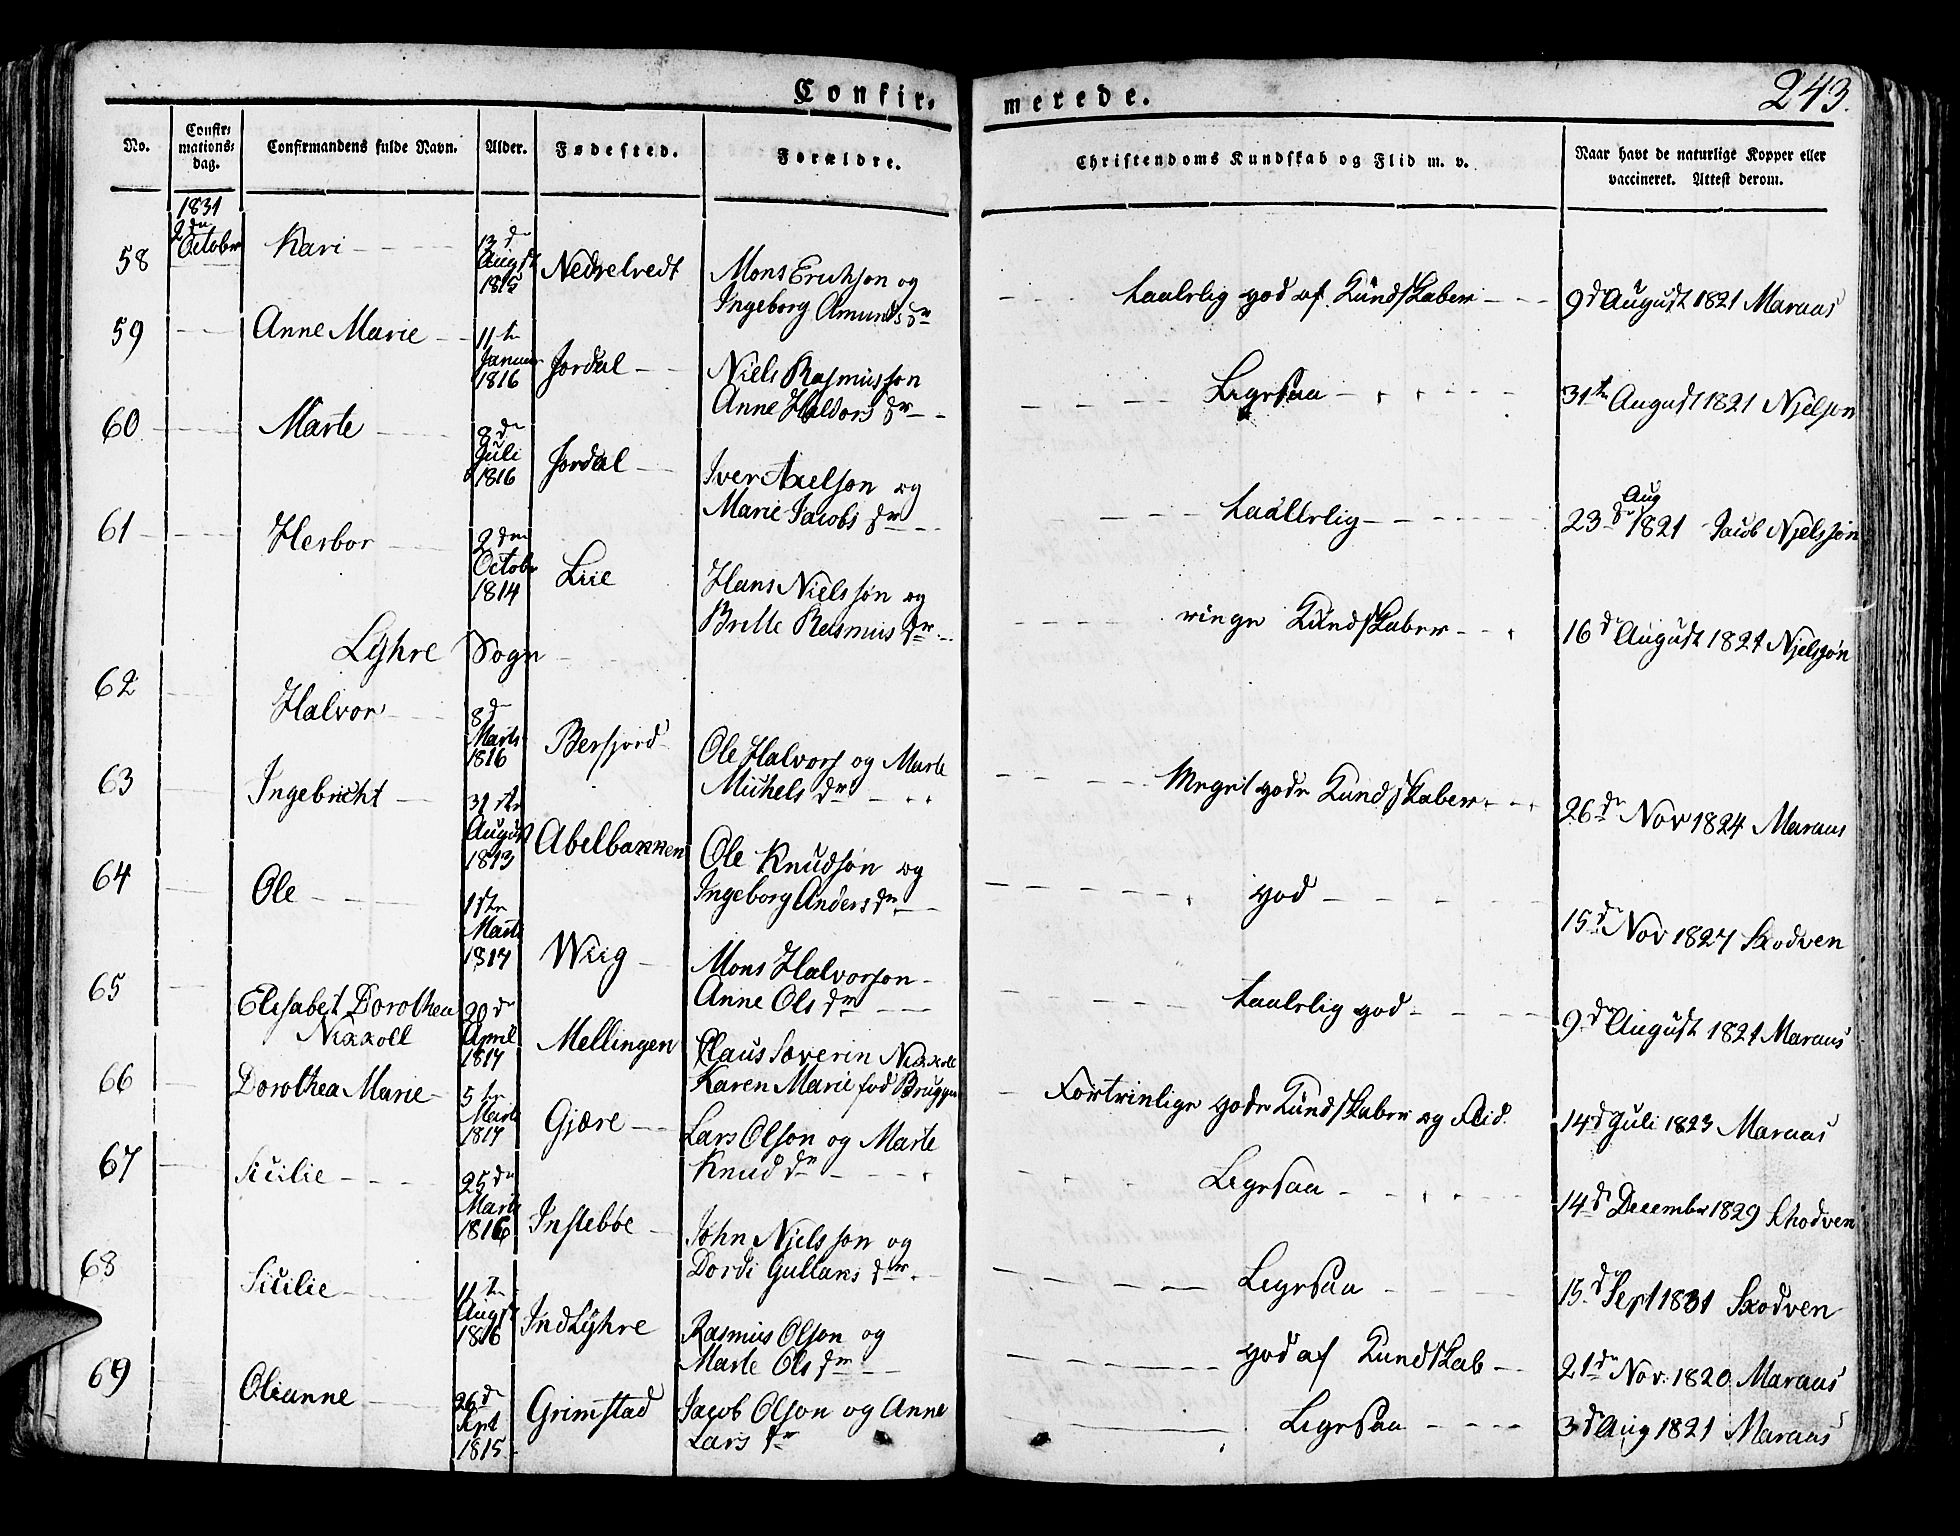 Confir- merede. 243.
No. Confir- mations- dag. Confirmandens fulde Navn. Alder. Fødested. Forældre. Christendoms Kundskab og Flid m. v. Naar havt de naturlige Kopper eller vaccineret. Attest derom.
1831
2den October
58 Kari 13de Augst Nedrelvedt Mons Erichson og Ingeborg Amunds dr taalelig god af Kundskaber 9de August 1821 Maraas
59 Anne Marie 11te Januar 1816 Jordal Niels Rasmusson Anne Haldors dr Ligesaa 31te August 1821 Njelson
60 Marte 8de Juli 1816 Jordal Iver Axelson og Marie Jacobs dr taalelig 23de Aug 1821 Jacob Njelsson
61 Herbor 2den Octobr 1814 Lie Hans Nielsson og Britte Rasmus dr ringe Kundskaber 16de August 1821 Njelsson
Lyhre Sogn
62 Halvor 8de Marts 1816 Berfjord Ole Halvors og Marte Michels dr Meget gode Kundskaber 26de Nov 1824 Maraas
63 Ingebricht 31te August 1813 Abelbakken Ole Knudson og Ingeborg Anders dr god 15de Nov 1827 Skodven
64 Ole 1ste Marts 1817 Wiig Mons Halvorson Anne Ols dr taalelig god 9de August 1821 Maraas
65 Elisabet Dorothea Nikkoll 20de April 1817 Mellingen Claus Severin Nikkoll Karen Marie fød Bruggen Fortrinlige gode Kundskaber og Flid. 14de Juli 1823 Maraas
66 Dorothea Marie 5te Marts 1817 Gjære Lars Olson og Marte Knud dr Ligesaa 14de December 1829 Skodven
67 Sicilie 25de Marts 1816 Instebøe John Njelsson og Dordi Gullaks dr Ligesaa 15de Sept 1831 Skodven
68 Sicilie 11te Augst 1816 IndLyhre Rasmus Olson og Marte Ols dr god af Kundskab 21de Nov. 1820 Maraas
69 Olianne 26de Sept 1815 Grimstad Jacob Olson og Anne Lars dr Ligesaa 3de Aug 1821 Maraas